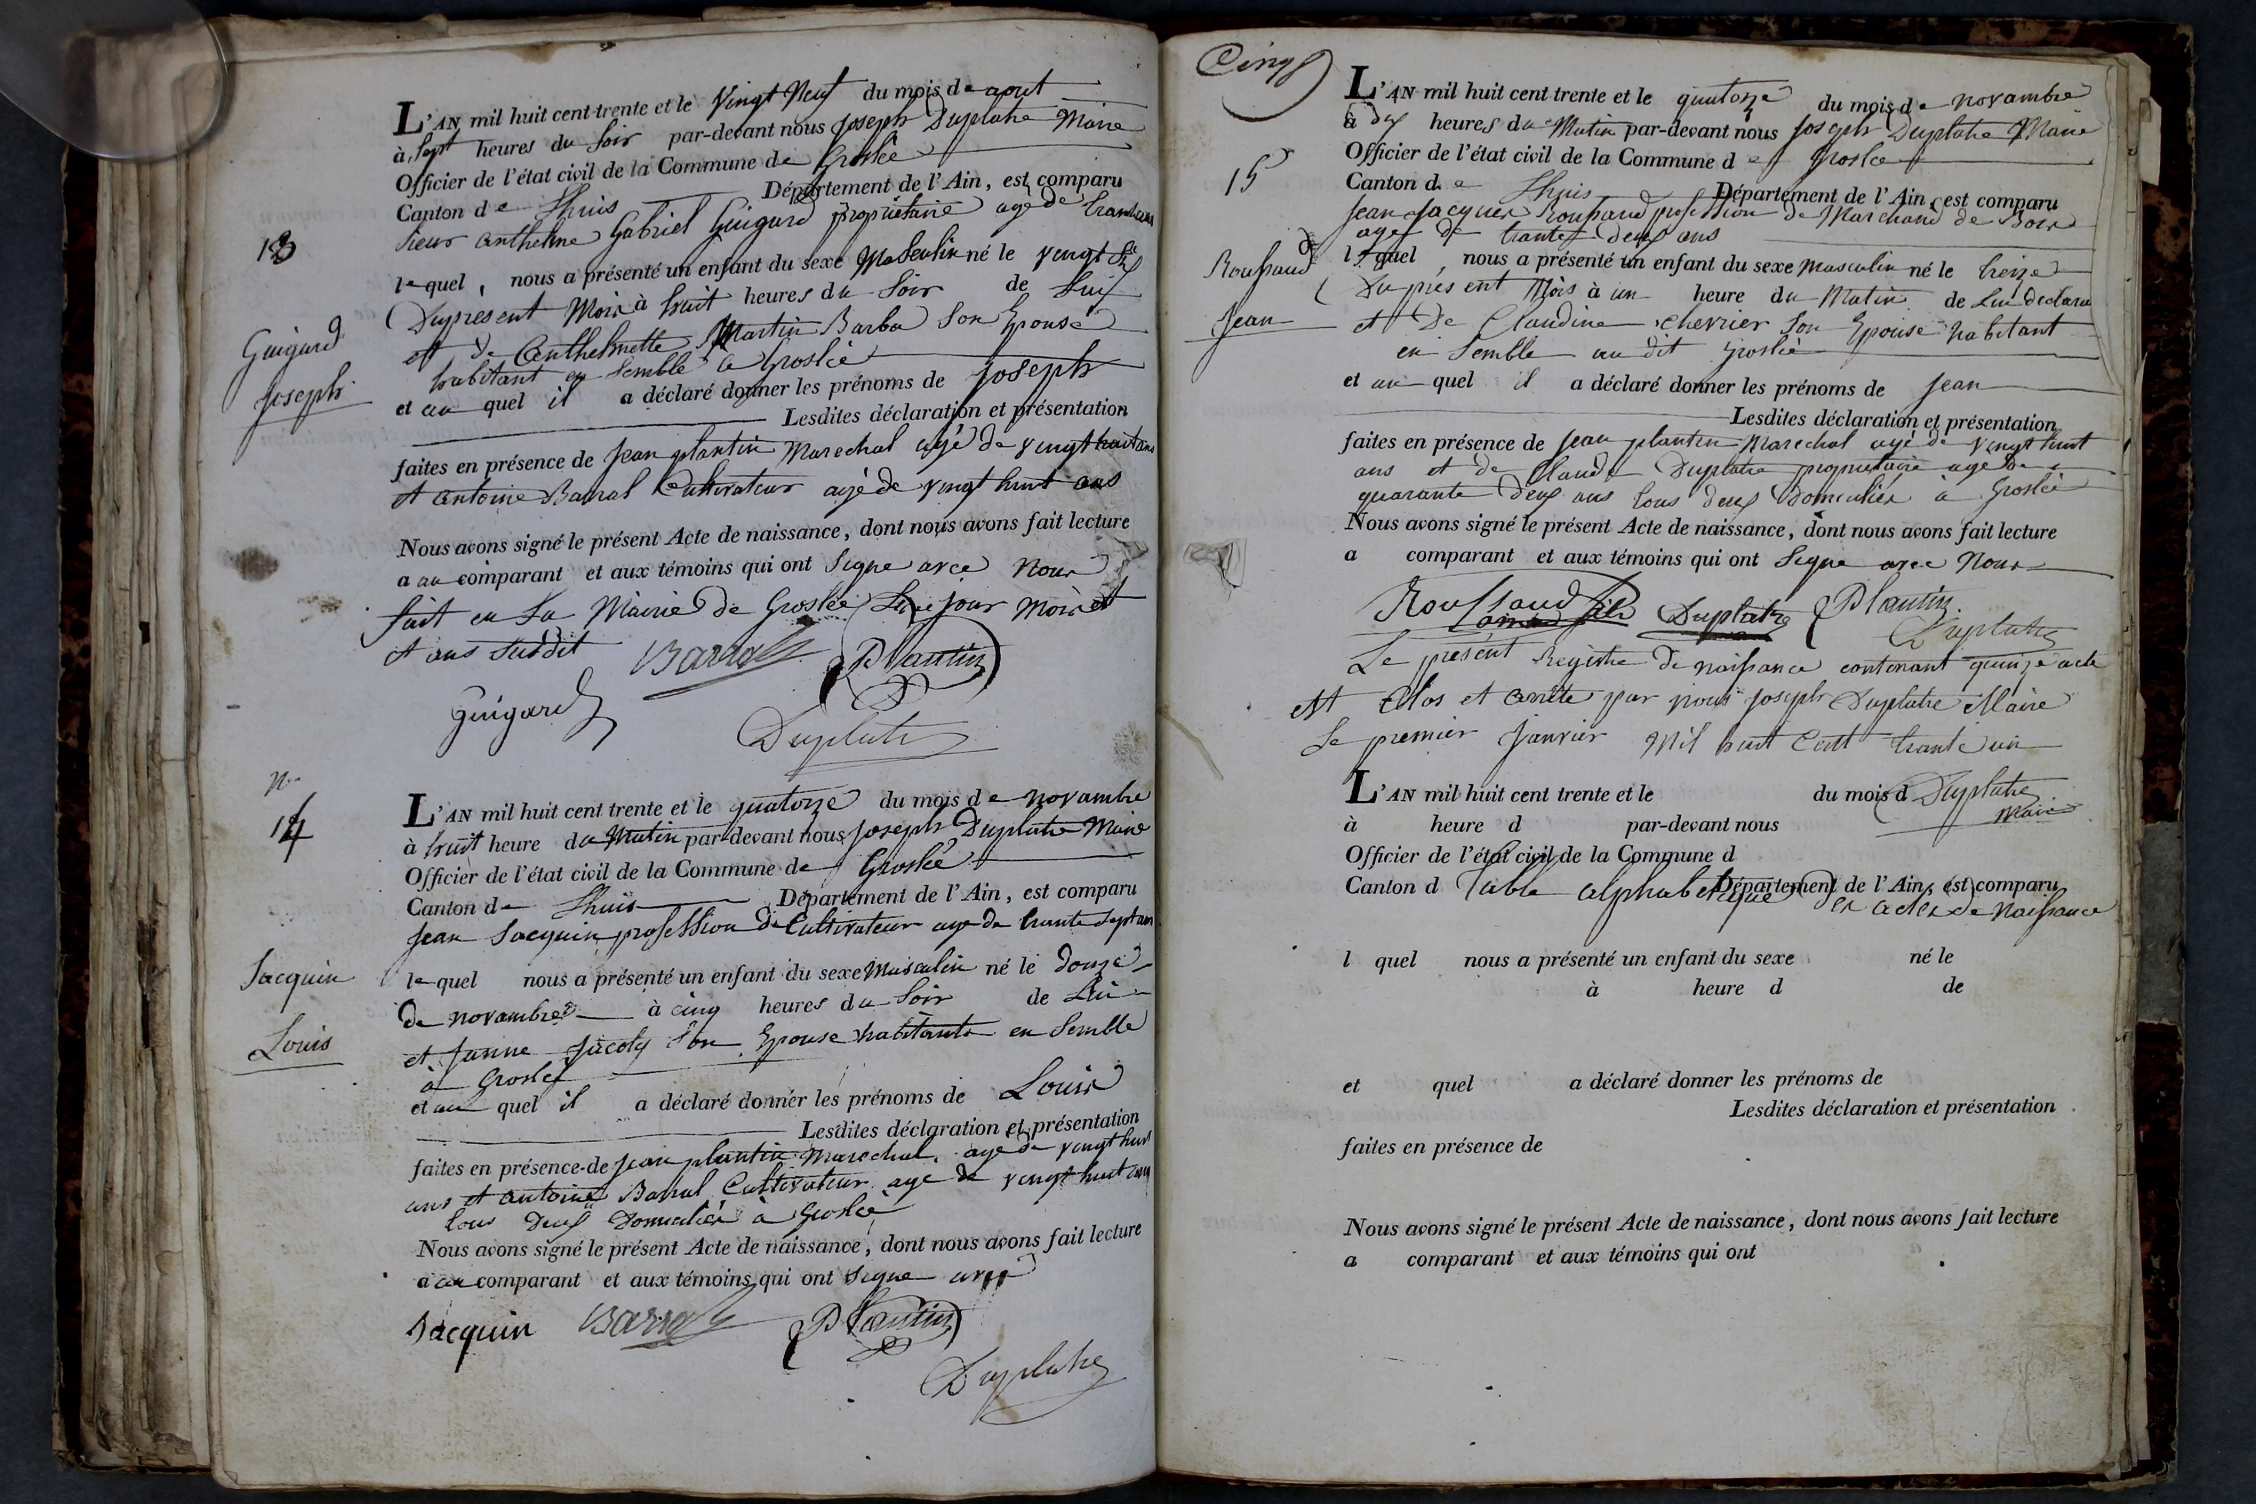 L'AN mil huit cent trente et le Vingt Neuf du mois de aout
à Sept heures du Soir par-devant nous Joseph Duplatre Maire
Officier de l'état civil de la Commune de Groslée
Canton de Lhuis Département de l'Ain, est comparu
Sieur Anthelme Gabriel Guigard propriétaire agé de
13
lequel, nous a présenté un enfant du sexe Masculin né le vingt Six
Dupresent Mois à huit heures du Soir de Lui
Guigard
et de Anthelmette Martin Barba Son Epouse
habitant en semble a Groslée
Joseph
et au quel il a déclaré donner les prénoms de Joseph
Lesdites déclaration et présentation
faites en présence de Jean plantin Marechal agé de vingt huit ans
et antoine Barral Cultivateur agé de vingt huit ans
Nous avons signé le présent Acte de naissance, dont nous avons fait lecture
a au comparant et aux témoins qui ont Signe avec Nous
fait en La Mairie de Groslée Le jour Mois et
et ans Suddit Barral Plantin
Guigard
Duplatre
No
14
L'AN mil huit cent trente et le quatorze du mois de novambre
à huit heure du Matin par-devant nous Joseph Duplatre Maire
Officier de l'état civil de la Commune de Groslée
Canton de Lhuis Département de l'Ain, est comparu
Jean Jacquin profession de Cultivateur age de trante Sept ans
Jacquin
lequel nous a présenté un enfant du sexe Masculin né le douze
de novambre à cinq heures du Soir de Lui
Louis
et Janne Jacoty Son Epouse habitants en Semble
à Groslée
et au quel il a déclaré donner les prénoms de Louis
Lesdites déclaration et présentation
faites en présence de Jean plantin Marechal agé de vingt huit
ans et antoine Barral Cultivateur age de vingt huit ans
tous deux Domiciliés à Groslée
Nous avons signé le présent Acte de naissance, dont nous avons fait lecture
a au comparant et aux témoins qui ont Signe avec
Jacquin Barral Plantin
Duplatre
Cinq
L'AN mil huit cent trente et le quatorze du mois de novambre
à dix heures du Matin par-devant nous Joseph Duplatre Maire
Officier de l'état civil de la Commune de Groslée
15
Canton de Lhuis Département de l'Ain, est comparu
Jean Jacques Roussaud profession de Marchand de Bois
agé de trante deux ans
Roussaud
lequel, nous a présenté un enfant du sexe Masculin né le treize
Du présent Mois à un heure du Matin de Lui declarant
Jean
et De Claudine chevrier Son Epouse habitant
en Semble au dit Groslée
et au quel il a déclaré donner les prénoms de Jean
Lesdites déclaration et présentation
faites en présence de Jean plantin Marechal agé de vingt huit
ans et de Claude Duplatre propriétaire age de
quarante deux ans tous deux Domiciliés à Groslée
Nous avons signé le présent Acte de naissance, dont nous avons fait lecture
a comparant et aux témoins qui ont Signe avec Nous
Roussaud fils Duplatre Plantin
Duplatre
Le présent Registre de naissance contenant quinze acte
est Clos et arrété par nous Joseph Duplatre Maire
Le premier Janvier Mil huit Cent trante un
L'AN mil huit cent trente et le du mois d Duplatre
Maire
à heure d par-devant nous
Officier de l'état civil de la Commune d
Canton d Département de l'Ain, est comparu
Table alphabetique Des actes de Naissance
l quel nous a présenté un enfant du sexe né le
à heure d de
et quel a déclaré donner les prénoms de
Lesdites déclaration et présentation
faites en présence de
Nous avons signé le présent Acte de naissance, dont nous avons fait lecture
a comparant et aux témoins qui ont